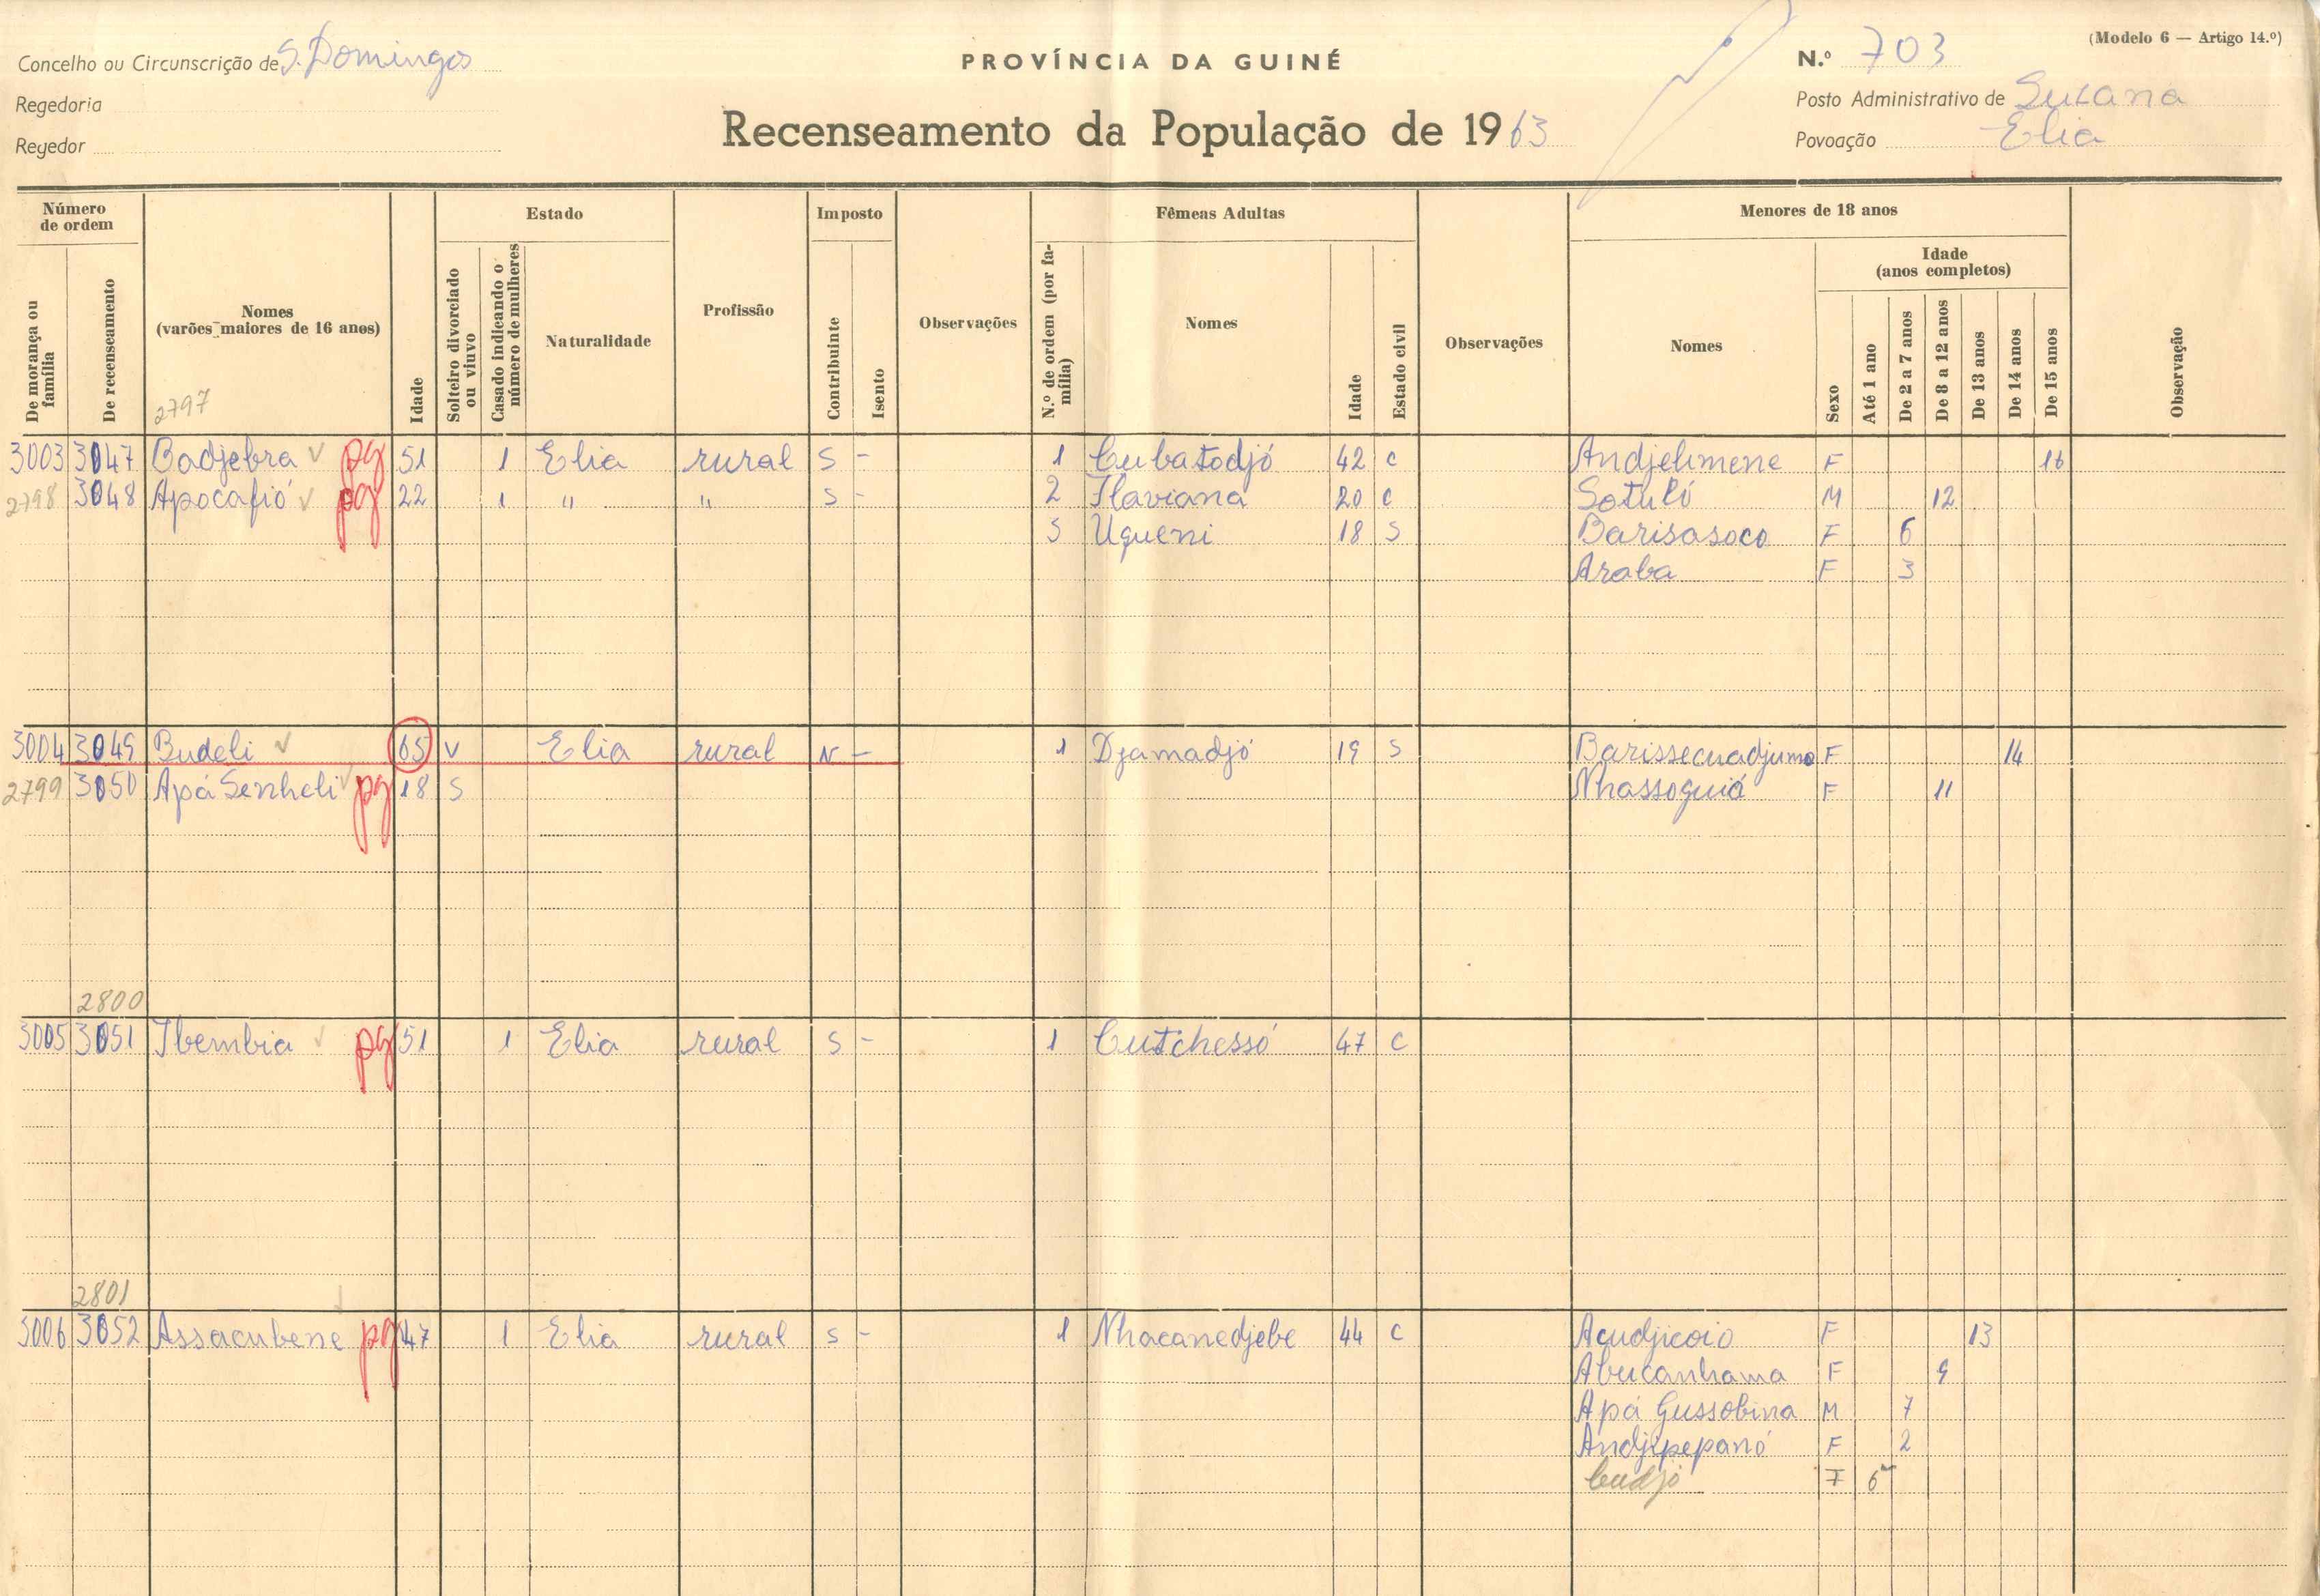 (Modelo 6 — Artigo 14.º)
Concelho ou Circunscrição de S. Domingos
PROVÍNCIA DA GUINÉ
N.º 703
Regedoria
Posto Administrativo de Suzana
Recenseamento da População de 1963
Regedor
Povoação Elia
Número de ordem
Estado
Imposto
Fêmeas Adultas
Menores de 18 anos
Idade (anos completos)
De morança ou família
De recenseamento
Nomes (varões maiores de 16 anos)
Idade
Solteiro divorciado ou viuvo
Casado indicando o número de mulheres
Naturalidade
Profissão
Contribuinte
Isento
Observações
N.º de ordem (por família)
Nomes
Idade
Estado civil
Observações
Nomes
Sexo
Até 1 ano
De 2 a 7 anos
De 8 a 12 anos
De 13 anos
De 14 anos
De 15 anos
Observação
2797
3003 3047 Badjebra pg 51 1 Elia rural S - 1 Cubatodjó 42 C Andjelimene F 16
2798 3048 Apocafió pg 22 1 " " S - 2 Flaviana 20 C Sotuló M 12
3 Uqueni 18 S Barisasoco F 6
Araba F 3
3004 3049 Budeli 65 V Elia rural N - 1 Djamadjó 19 S Barissecuadjumo F 14
2799 3050 Apá Senheli pg 18 S Nhassoguiá F 11
2800
3005 3051 Ibembia pg 51 1 Elia rural S - 1 Cutchessó 47 C
2801
3006 3052 Assacubene pg 47 1 Elia rural S - 1 Nhacanedjebe 44 C Acudjicoio F 13
Abucanhama F 9
Apá Gussobina M 7
Andjepepanó F 2
Cudjo F